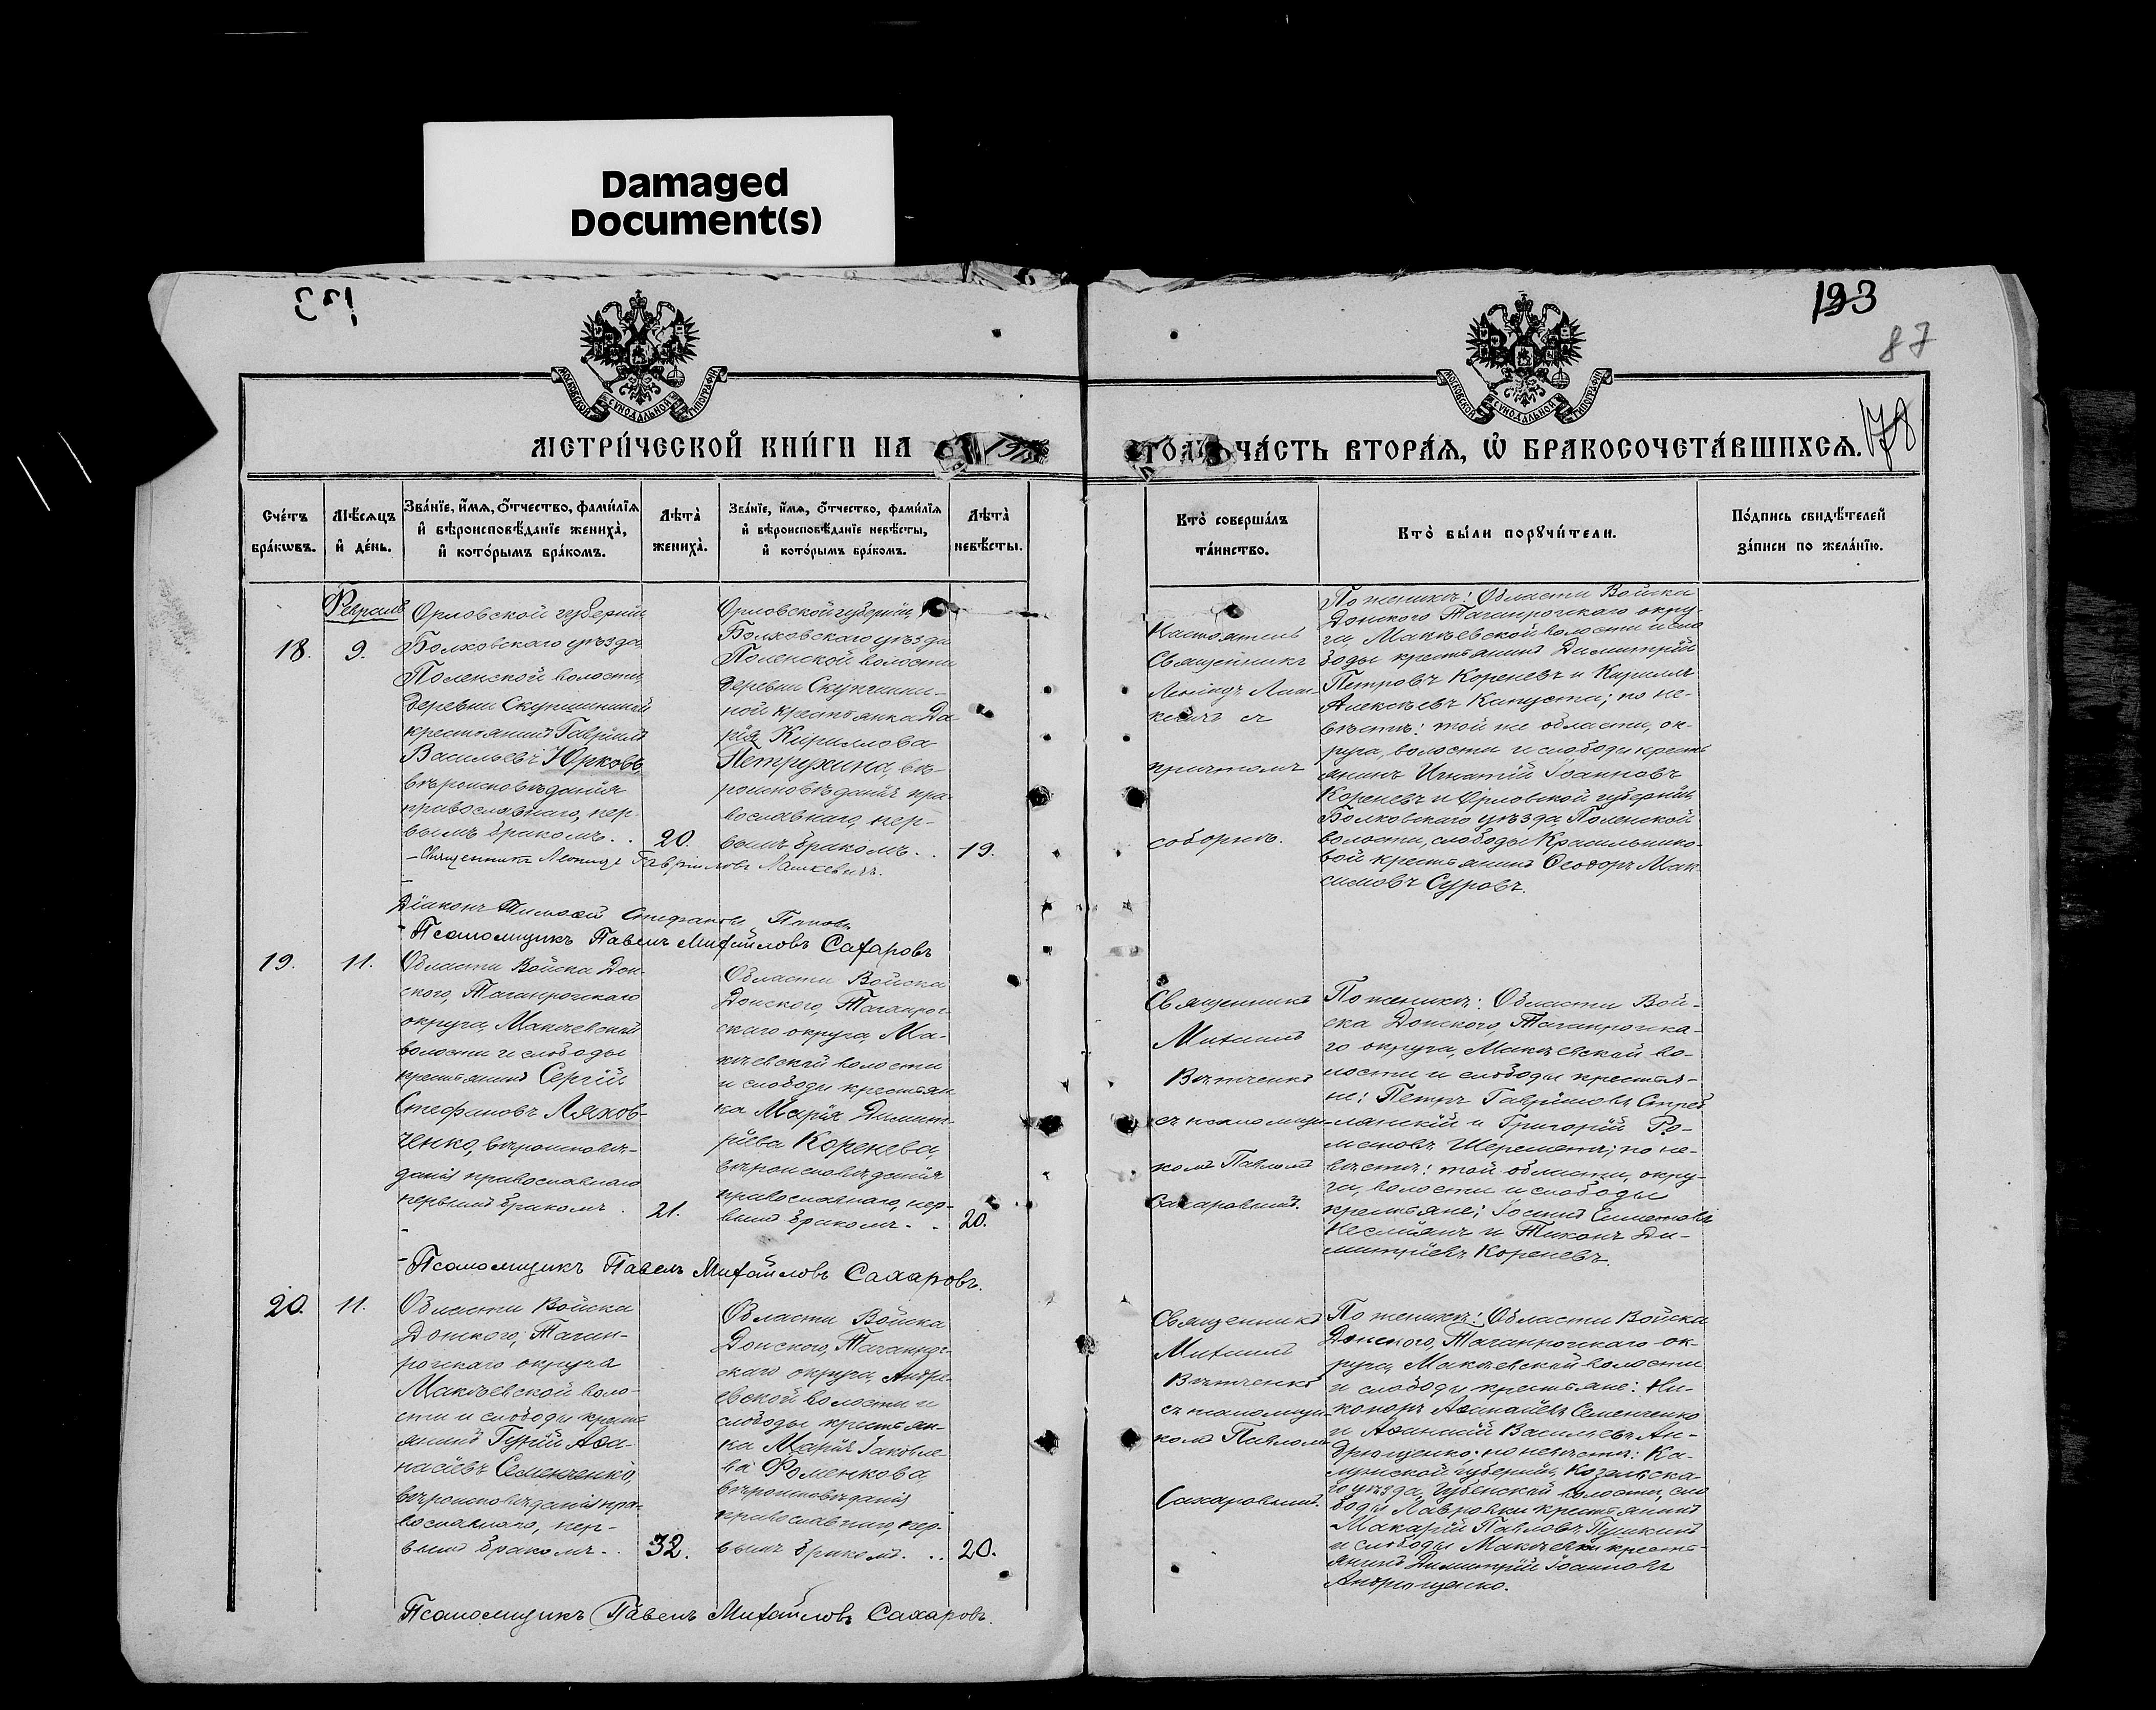 Damaged
Document(s)
193
87
178
МОСКОВСКОЙ СѴНОДАЛЬНОЙ ТИПОГРАФІИ
МОСКОВСКОЙ СѴНОДАЛЬНОЙ ТИПОГРАФІИ
МЕТРИ́ЧЕСКОЙ КНИ́ГИ НА
ГОДЪ ЧА́СТЬ ВТОРА́Ѧ, Ѡ҆ БРАКОСОЧЕТА́ВШИХСѦ.
Сче́тъ
бра́кѡвъ.
Мѣ́сѧцъ
и҆ де́нь.
Зва́нїе, и҆́мѧ, ѻ҆́тчество, фами́лїѧ
и҆ вѣроисповѣ́данїе жениха̀,
и҆ кото́рымъ бра́комъ.
Лѣта̀
жениха̀.
Зва́нїе, и҆́мѧ, ѻ҆́тчество, фами́лїѧ
и҆ вѣроисповѣ́данїе невѣ́сты,
и҆ кото́рымъ бра́комъ.
Лѣта̀
невѣ́сты.
Кто̀ соверша́лъ
та́инство.
Кто̀ бы́ли порꙋчи́тели.
По́дпись свидѣ́телей
за́писи по жела́нїю.
Февраль
18.
9.
Орловской губерніи
Болховскаго уѣзда
Поленской волости
деревни Скупшиной
крестьянинъ Гавріилъ
Васильевъ Юрковъ,
вѣроисповѣданія
православнаго, пер-
вымъ бракомъ. .
20.
Орловской губерніи,
Болховскаго уѣзда
Поленской волости
деревни
ной крестьянка Да-
рія Кириллова
Петрухина, вѣ-
роисповѣданія пра-
вославнаго, пер-
вымъ бракомъ. .
19.
Настоятель
Священникъ
Леонидъ Лаш-
кевичъ съ
причтомъ
соборнѣ.
По женихѣ: Области Войска
Донского Таганрогскаго окру-
га, Макѣевской волости и сло
боды крестьяне Димитрій
Петровъ Кореневъ и Кириллъ
Алексѣевъ Капуста; по не-
вѣстѣ: той же области, ок-
руга, волости и слободы кресть
янинъ Игнатій Іоанновъ
Кореневъ и Орловской губерніи,
Болховскаго уѣзда Поленской
волости, слободы Красильнико-
вой крестьянинъ Ѳеодоръ Мак-
симовъ Суровъ.
Священникъ Леонидъ Гавріиловъ Лашкевичъ.
Діаконъ Тимоѳей Стефановъ Поповъ
Псаломщикъ Павелъ Михайловъ Сахаровъ
19.
11.
Области Войска Дон-
ского, Таганрогскаго
округа, Макѣевской
волости и слободы
крестьянинъ Сергій
Стефановъ Ляхов-
ченко, вѣроисповѣ-
данія православнаго
первымъ бракомъ .
21.
Области Войска
Донского, Таганрог-
скаго округа, Ма-
кѣевской волости
и слободы крестьян
ка Марія Димит-
ріева Коренева,
вѣроисповѣданія
православнаго, пер-
вымъ бракомъ. .
20.
Священникъ
Михаилъ
Вѣтченко
съ псаломщи-
комъ Павломъ
Сахаровымъ.
По женихѣ: Области Вой-
ска Донского, Таганрогска-
го округа, Макѣевской во-
лости и слободы крестья-
не: Петръ Гавріиловъ
и Григорій Ро-
мановъ Шереметъ; по не-
вѣстѣ: той области, окру-
га, волости и слободы
крестьяне: Симеоновъ
и Тихонъ Ди-
митріевъ Кореневъ.
Псаломщикъ Павелъ Михайловъ Сахаровъ.
20.
11.
Области Войска
Донского, Таган-
рогскаго округа
Макѣевской воло-
сти и слободы кресть
янинъ Гурій Аѳа-
насіевъ Семенченко,
вѣроисповѣданія пра-
вославнаго, пер-
вымъ бракомъ. .
32.
Области Войска
Донского, Таганрог-
скаго округа, Андре-
евской волости и
слободы крестьян-
ка Марія Іаковле-
ва Фоменкова
вѣроисповѣданія
православнаго, пер-
вымъ бракомъ. . .
20.
Священникъ
Михаилъ
Вѣтченко
съ псаломщи-
комъ Павломъ
Сахаровымъ.
По женихѣ: Области Войска
Донского, Таганрогскаго ок-
руга, Макѣевской волости
и слободы крестьяне: Ни-
каноръ Аѳанасіевъ Семенченко
и Аѳанасій Васильевъ Ан-
дрющенко; по невѣстѣ: Ка-
лужской губерніи, Козельска-
го уѣзда, волости, сло
боды Лавровки крестьянинъ
Макарій Павловъ Пушкинъ
и слободы Макѣевки кресть-
янинъ Димитрій Іоанновъ
Андрющенко.
Псаломщикъ Павелъ Михайловъ Сахаровъ.